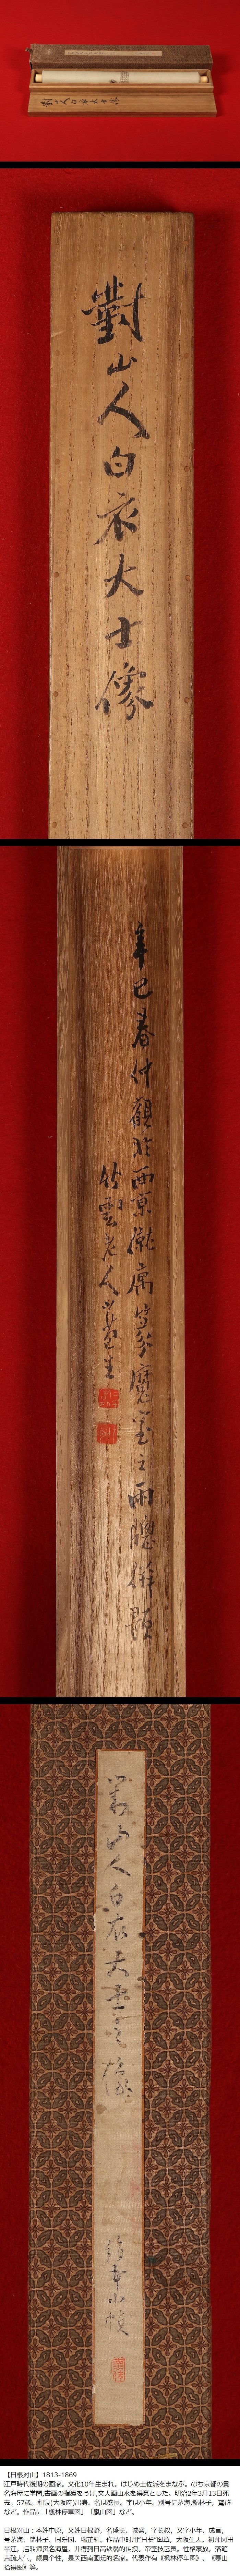 對山人白衣大士像
辛巳春仲觀於西京
竹雲老人
對山人白衣大士之像
【日根対山】1813-1869
江戸時代後期の画家。文化10年生まれ。はじめ土佐派をまなぶ。のち京都の貫
名海屋に学問,書画の指導をうけ,文人画山水を得意とした。明治2年3月13日死
去。57歳。和泉(大阪府)出身。名は盛長。字は小年。別号に茅海,錦林子，鷲群
など。作品に「楓林停車図」「嵐山図」など。
日根対山：本姓中原，又姓日根野，名盛长、诚盛，字长叔，又字小年、成言，
号茅海、锦林子、同乐园、瑞芷轩。作品中时用“日长”图章，大阪生人。初师冈田
半江，后转师贯名海屋，并得到日高伙刨的传授。帝室技艺员。性格豪放，落笔
来疏大气，颇具个性，是关西南画坛的名家。代表作有《枫林停车图》、《寒山
拾得图》等。